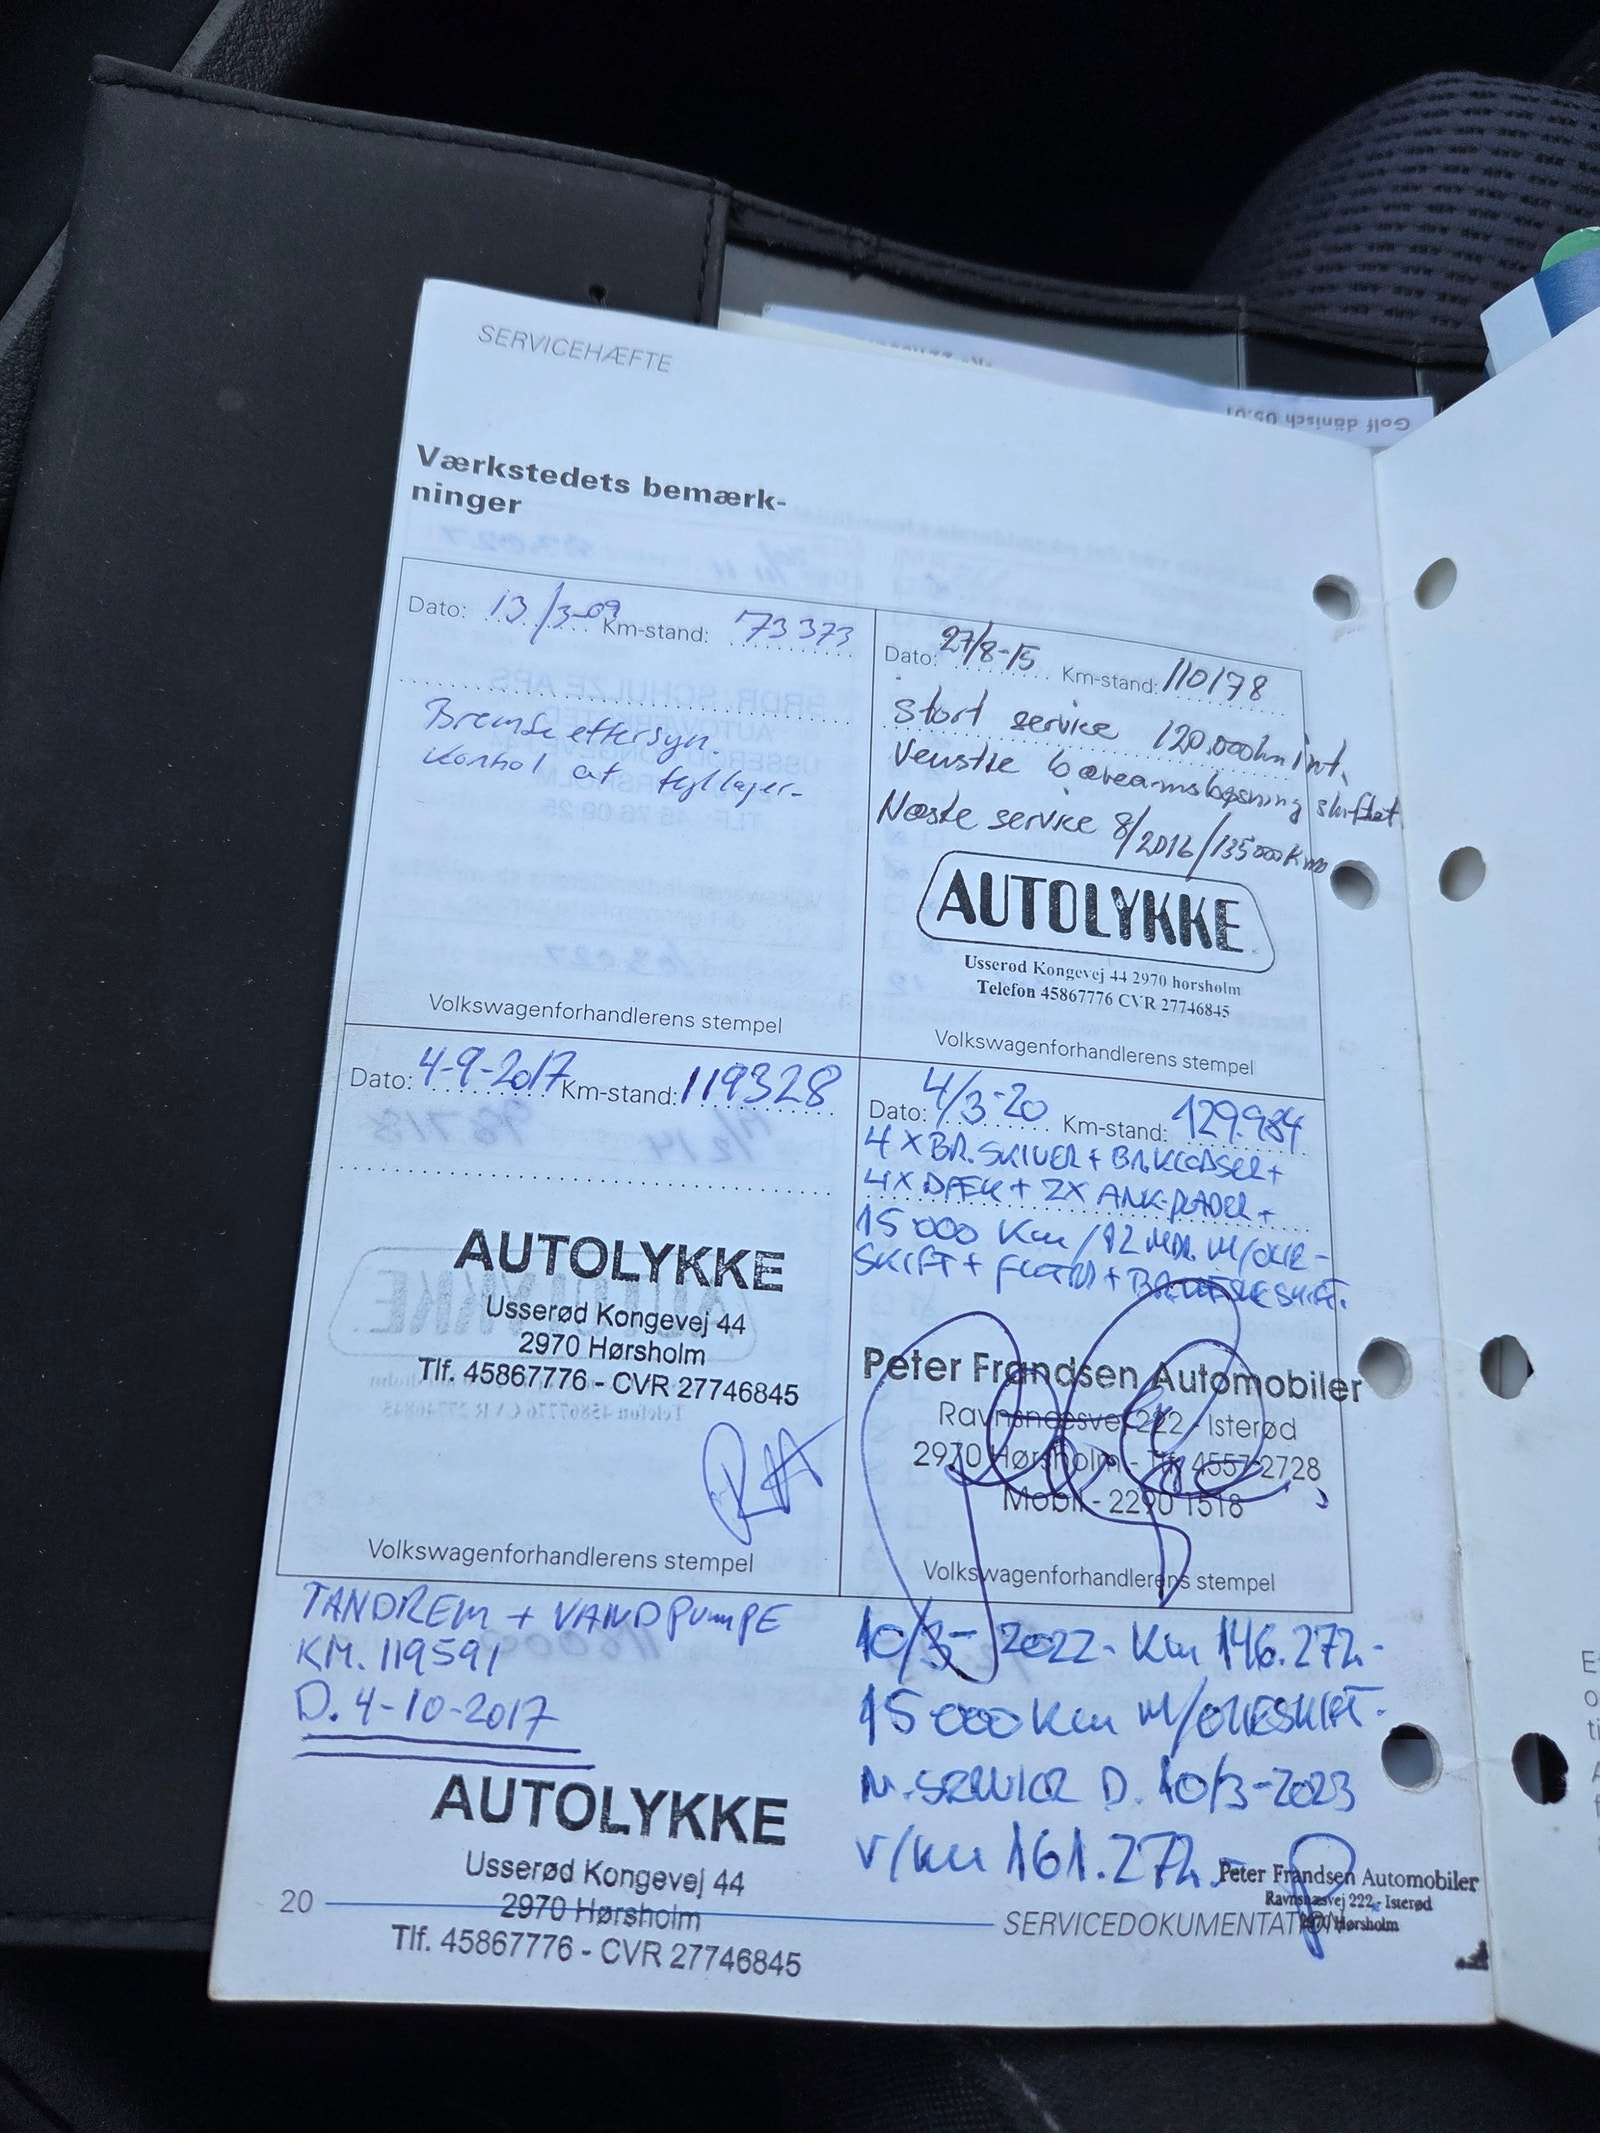 SERVICEHÆFTE
Golf dänisch 05.01
Værkstedets bemærk-
ninger
Dato: 13/3-09 Km-stand: 73373
Bremse eftersyn.
Kontrol af
Volkswagenforhandlerens stempel
Dato: 27/8-15 Km-stand: 110178
Stort service 120.000km int.
Venstre bærearmsbøsning skiftet
Næste service 8/2016/135000Km
AUTOLYKKE
Usserød Kongevej 44 2970 horsholm
Telefon 45867776 CVR 27746845
Volkswagenforhandlerens stempel
Dato: 4-9-2017 Km-stand: 119328
AUTOLYKKE
Usserød Kongevej 44
2970 Hørsholm
Tlf. 45867776 - CVR 27746845
Volkswagenforhandlerens stempel
Dato: 4/3-20 Km-stand: 129.984
4 X BR.SKIVER + BR.KLODSER +
4X DÆK + 2X
15000 Km/12 MDR. M/OLIE-
SKIFT + FILTRE + BR.VÆSKE SKIFT.
Peter Frandsen Automobiler
Ravnsnæsvej 222 - Isterød
2970 Hørsholm - Tlf. 4557 2728
Mobil - 2290 1518
Volkswagenforhandlerens stempel
TANDREM + VANDPUMPE
KM. 119591
D. 4-10-2017
AUTOLYKKE
Usserød Kongevej 44
2970 Hørsholm
Tlf. 45867776 - CVR 27746845
10/3-2022- Km 146.272.-
15000 Km M/OLIESKIFT.
N. SERVICE D. 10/3-2023
v/km 161.272.-
Peter Frandsen Automobiler
Ravnsnæsvej 222 - Isterød
2970 Hørsholm
20
SERVICEDOKUMENTATION